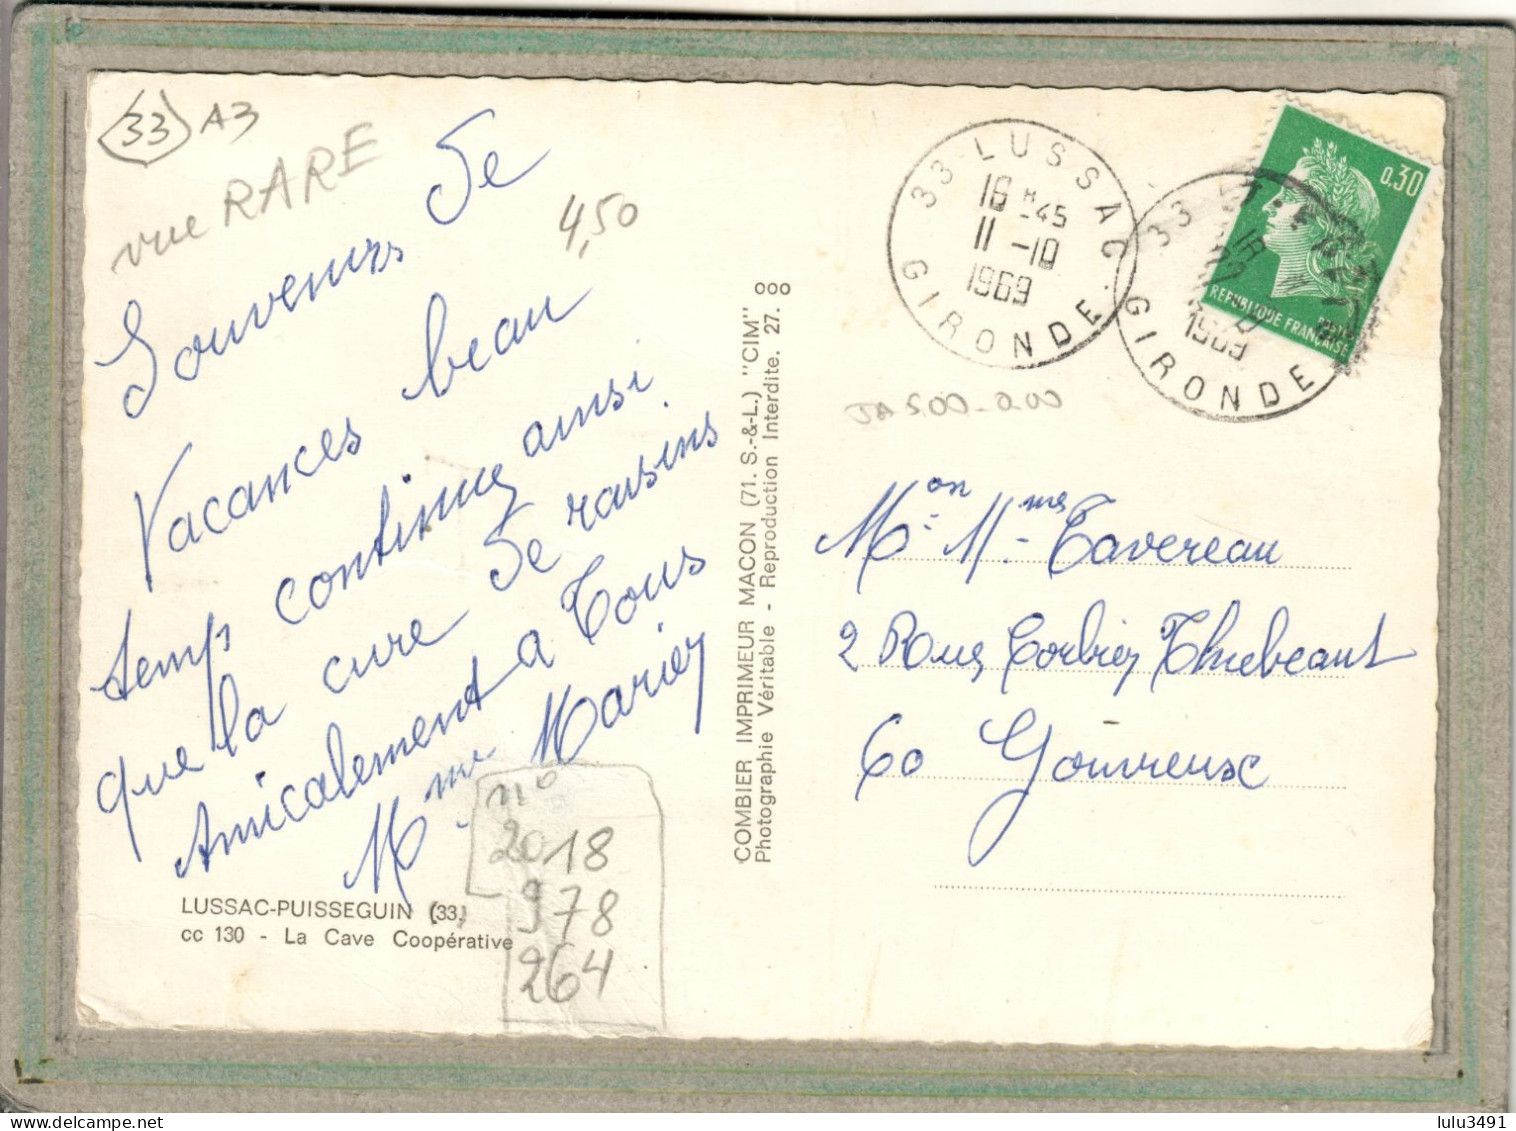 33 A3
vue RARE
4,50
Souvenirs de
Vacances beau
temps continue ainsi
que la cure de raisins
Amicalement a Tous
Mme Mariey
n°
2018
978
264
LUSSAC-PUISSEGUIN (33)
cc 130 - La Cave Coopérative
COMBIER IMPRIMEUR MACON (71. S.-&-L.) "CIM"
Photographie Véritable - Reproduction Interdite. 27.
33 LUSSAC
16 H 45
11-10
1969
GIRONDE
33
1969
GIRONDE
0,30
REPUBLIQUE FRANÇAISE
POSTES
Mon Mmes Tavereau
2 Rue Corbier Thiebeaut
60 Gouvieux
lulu3491